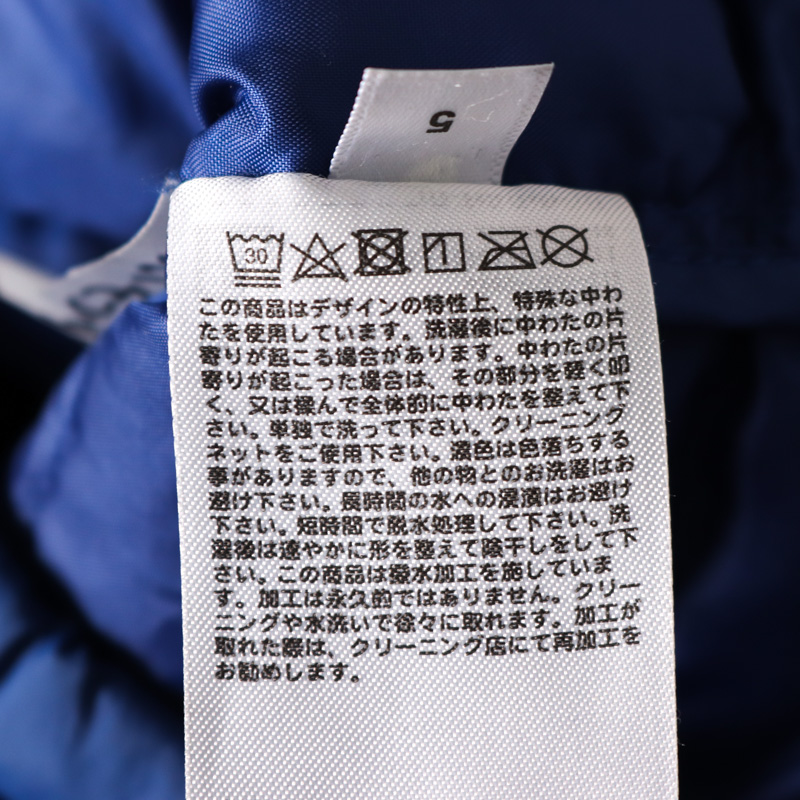 5
30
この商品はデザインの特性上、特殊な中わ
たを使用しています。洗濯後に中わたの片
寄りが起こる場合があります。中わたの片
寄りが起こった場合は、その部分を軽く叩
く、又は揉んで全体的に中わたを整えて下
さい。単独で洗って下さい。クリーニング
ネットをご使用下さい。濃色は色落ちする
事がありますので、他の物とのお洗濯はお
避け下さい。長時間の水への浸漬はお避け
下さい。短時間で脱水処理して下さい。洗
濯後は速やかに形を整えて陰干しをして下
さい。この商品は撥水加工を施していま
す。加工は永久的ではありません。クリー
ニングや水洗いで徐々に取れます。加工が
取れた際は、クリーニング店にて再加工を
お勧めします。